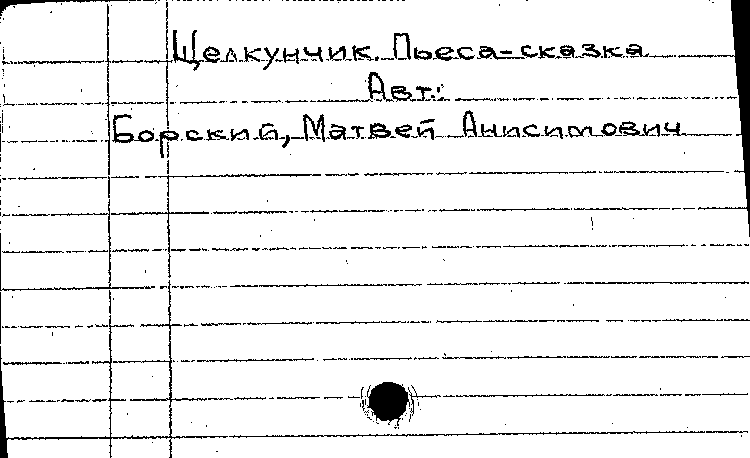 Щелкунчик. Пьеса-сказка
Авт.:
Борский, Матвей Анисимович